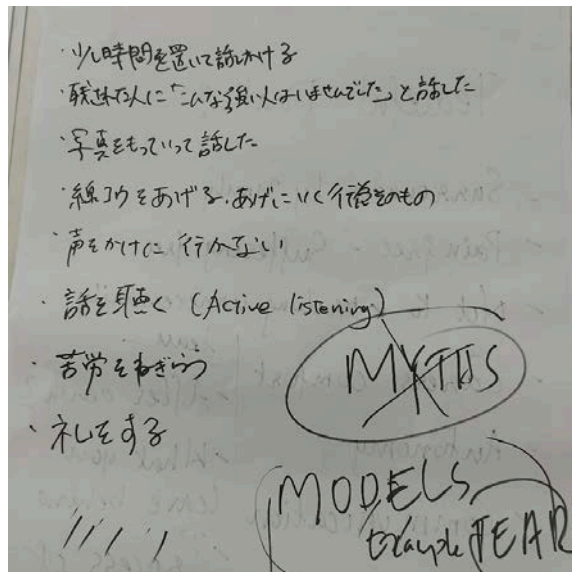 ・少し時間を置いて話しかける
・残された人に「こんな強い人はいませんでした」と話した
・写真をもっていって話した
・線コウをあげる、あげにいく行為そのもの
・声をかけに行かない
・話を聴く (Active listening)
・苦労をねぎらう
・礼をする
MYTHS
MODELS
Example TEAR